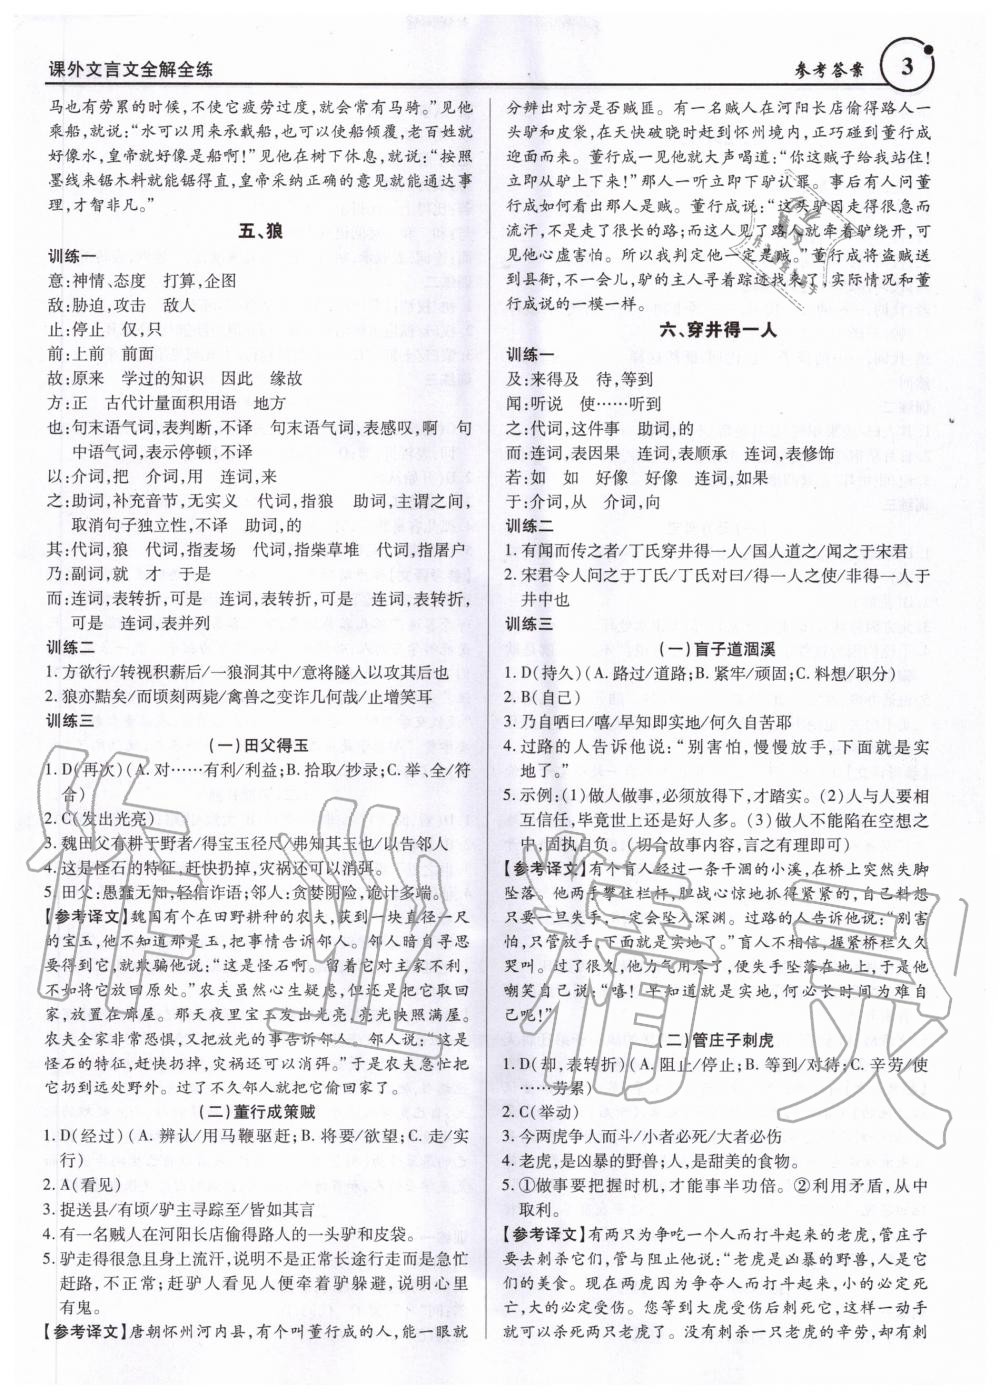 课外文言文全解全练
参考答案 3
马也有劳累的时候,不使它疲劳过度,就会常有马骑。”见他
乘船,就说:“水可以用来承载船,也可以使船倾覆,老百姓就
好像水,皇帝就好像是船啊!”见他在树下休息,就说:“按照
墨线来锯木料就能锯得直,皇帝采纳正确的意见就能通达事
理,才智非凡。”
五、狼
训练一
意:神情、态度 打算,企图
敌:胁迫,攻击 敌人
止:停止 仅,只
前:上前 前面
故:原来 学过的知识 因此 缘故
方:正 古代计量面积用语 地方
也:句末语气词,表判断,不译 句末语气词,表感叹,啊 句
中语气词,表示停顿,不译
以:介词,把 介词,用 连词,来
之:助词,补充音节,无实义 代词,指狼 助词,主谓之间,
取消句子独立性,不译 助词,的
其:代词,狼 代词,指麦场 代词,指柴草堆 代词,指屠户
乃:副词,就 才 于是
而:连词,表转折,可是 连词,表转折,可是 连词,表转折,
可是 连词,表并列
训练二
1. 方欲行/转视积薪后/一狼洞其中/意将隧入以攻其后也
2. 狼亦黠矣/而顷刻两毙/禽兽之变诈几何哉/止增笑耳
训练三
(一)田父得玉
1. D(再次)(A. 对……有利/利益;B. 拾取/抄录;C. 举、全/符
合)
2. C(发出光亮)
3. 魏田父有耕于野者/得宝玉径尺/弗知其玉也/以告邻人
4. 这是怪石的特征,赶快扔掉,灾祸还可以消弭。
5. 田父:愚蠢无知,轻信诈语;邻人:贪婪阴险,诡计多端。
【参考译文】魏国有个在田野耕种的农夫,获到一块直径一尺
的宝玉,他不知道那是玉,把事情告诉邻人。邻人暗自寻思
要得到它,就欺骗他说:“这是怪石啊。留着它对主家不利,
不如将它放回原处。”农夫虽然心生疑虑,但还是把它取回
家,放置在廊屋。那天夜里宝玉发出光亮,亮光映照满屋。
农夫全家非常恐惧,又把此怪事告诉邻人。邻人说:“这是
怪石的特征,赶快扔掉,灾祸还可以消弭。”于是农夫急忙把
它扔到远处野外。过了不久邻人就把它偷回家了。
(二)董行成策贼
1. D(经过)(A. 辨认/用马鞭驱赶;B. 将要/欲望;C. 走/实
行)
2. A(看见)
3. 捉送县/有顷/驴主寻踪至/皆如其言
4. 有一名贼人在河阳长店偷得路人的一头驴和皮袋。
5. 驴走得很急且身上流汗,说明不是正常长途行走而是急忙
赶路,不正常;赶驴人看见人便牵着驴躲避,说明心里
有鬼。
【参考译文】唐朝怀州河内县,有个叫董行成的人,能一眼就
分辨出对方是否贼匪。有一名贼人在河阳长店偷得路人一
头驴和皮袋,在天快破晓时赶到怀州境内,正巧碰到董行成
迎面而来。董行成一见他就大声喝道:“你这贼子给我站住!
立即从驴上下来!”那人一听立即下驴认罪。事后有人问董
行成如何看出那人是贼。董行成说:“这头驴因走得很急而
流汗,不是走了很长的路;而这人见了路人就牵着驴绕开,可
见他心虚害怕。所以我判定他一定是贼。”董行成将盗贼送
到县衙,不一会儿,驴的主人寻着踪迹找来了,实际情况和董
行成说的一模一样。
六、穿井得一人
训练一
及:来得及 待,等到
闻:听说 使……听到
之:代词,这件事 助词,的
而:连词,表因果 连词,表顺承 连词,表修饰
若:如 如 好像 好像 连词,如果
于:介词,从 介词,向
训练二
1. 有闻而传之者/丁氏穿井得一人/国人道之/闻之于宋君
2. 宋君令人问之于丁氏/丁氏对曰/得一人之使/非得一人于
井中也
训练三
(一)盲子道涸溪
1. D(持久)(A. 路过/道路;B. 紧牢/顽固;C. 料想/职分)
2. B(自己)
3. 乃自哂曰/嘻/早知即实地/何久自苦耶
4. 过路的人告诉他说:“别害怕,慢慢放手,下面就是实
地了。”
5. 示例:(1)做人做事,必须放得下,才踏实。(2)人与人要
相互信任,毕竟世上还是好人多。(3)做人不能陷在空想之
中,固执自负。(切合故事内容,言之有理即可)
【参考译文】有个盲人经过一条干涸的小溪,在桥上突然失脚
坠落。他两手攀住栏杆,胆战心惊地抓得紧紧的,自己料想
只要一旦失手,一定会坠入深渊。过路的人告诉他说:“别害
怕,只管放手,下面就是实地了。”盲人不相信,握紧桥栏久久
哭叫。过了很久,他力气用尽了,便失手坠落在地上,于是他
嘲笑自己说:“嘻!早知道就是实地,何必长时间为难自
己呢!”
(二)管庄子刺虎
1. D(却,表转折)(A. 阻止/停止;B. 等到/对待;C. 辛劳/使
……劳累)
2. C(举动)
3. 今两虎争人而斗/小者必死/大者必伤
4. 老虎,是凶暴的野兽;人,是甜美的食物。
5. ①做事要把握时机,才能事半功倍。②利用矛盾,从中
取利。
【参考译文】有两只为争吃一个人而打斗起来的老虎,管庄子
要去刺杀它们,管与阻止他说:“老虎是凶暴的野兽,人是它
们的美食。现在两虎因为争夺人而打斗起来,小的必定死
亡,大的必定受伤。您等到大虎受伤后刺死它,这样一动手
就可以杀死两只老虎了。没有刺杀一只老虎的辛劳,却有刺
作业精灵